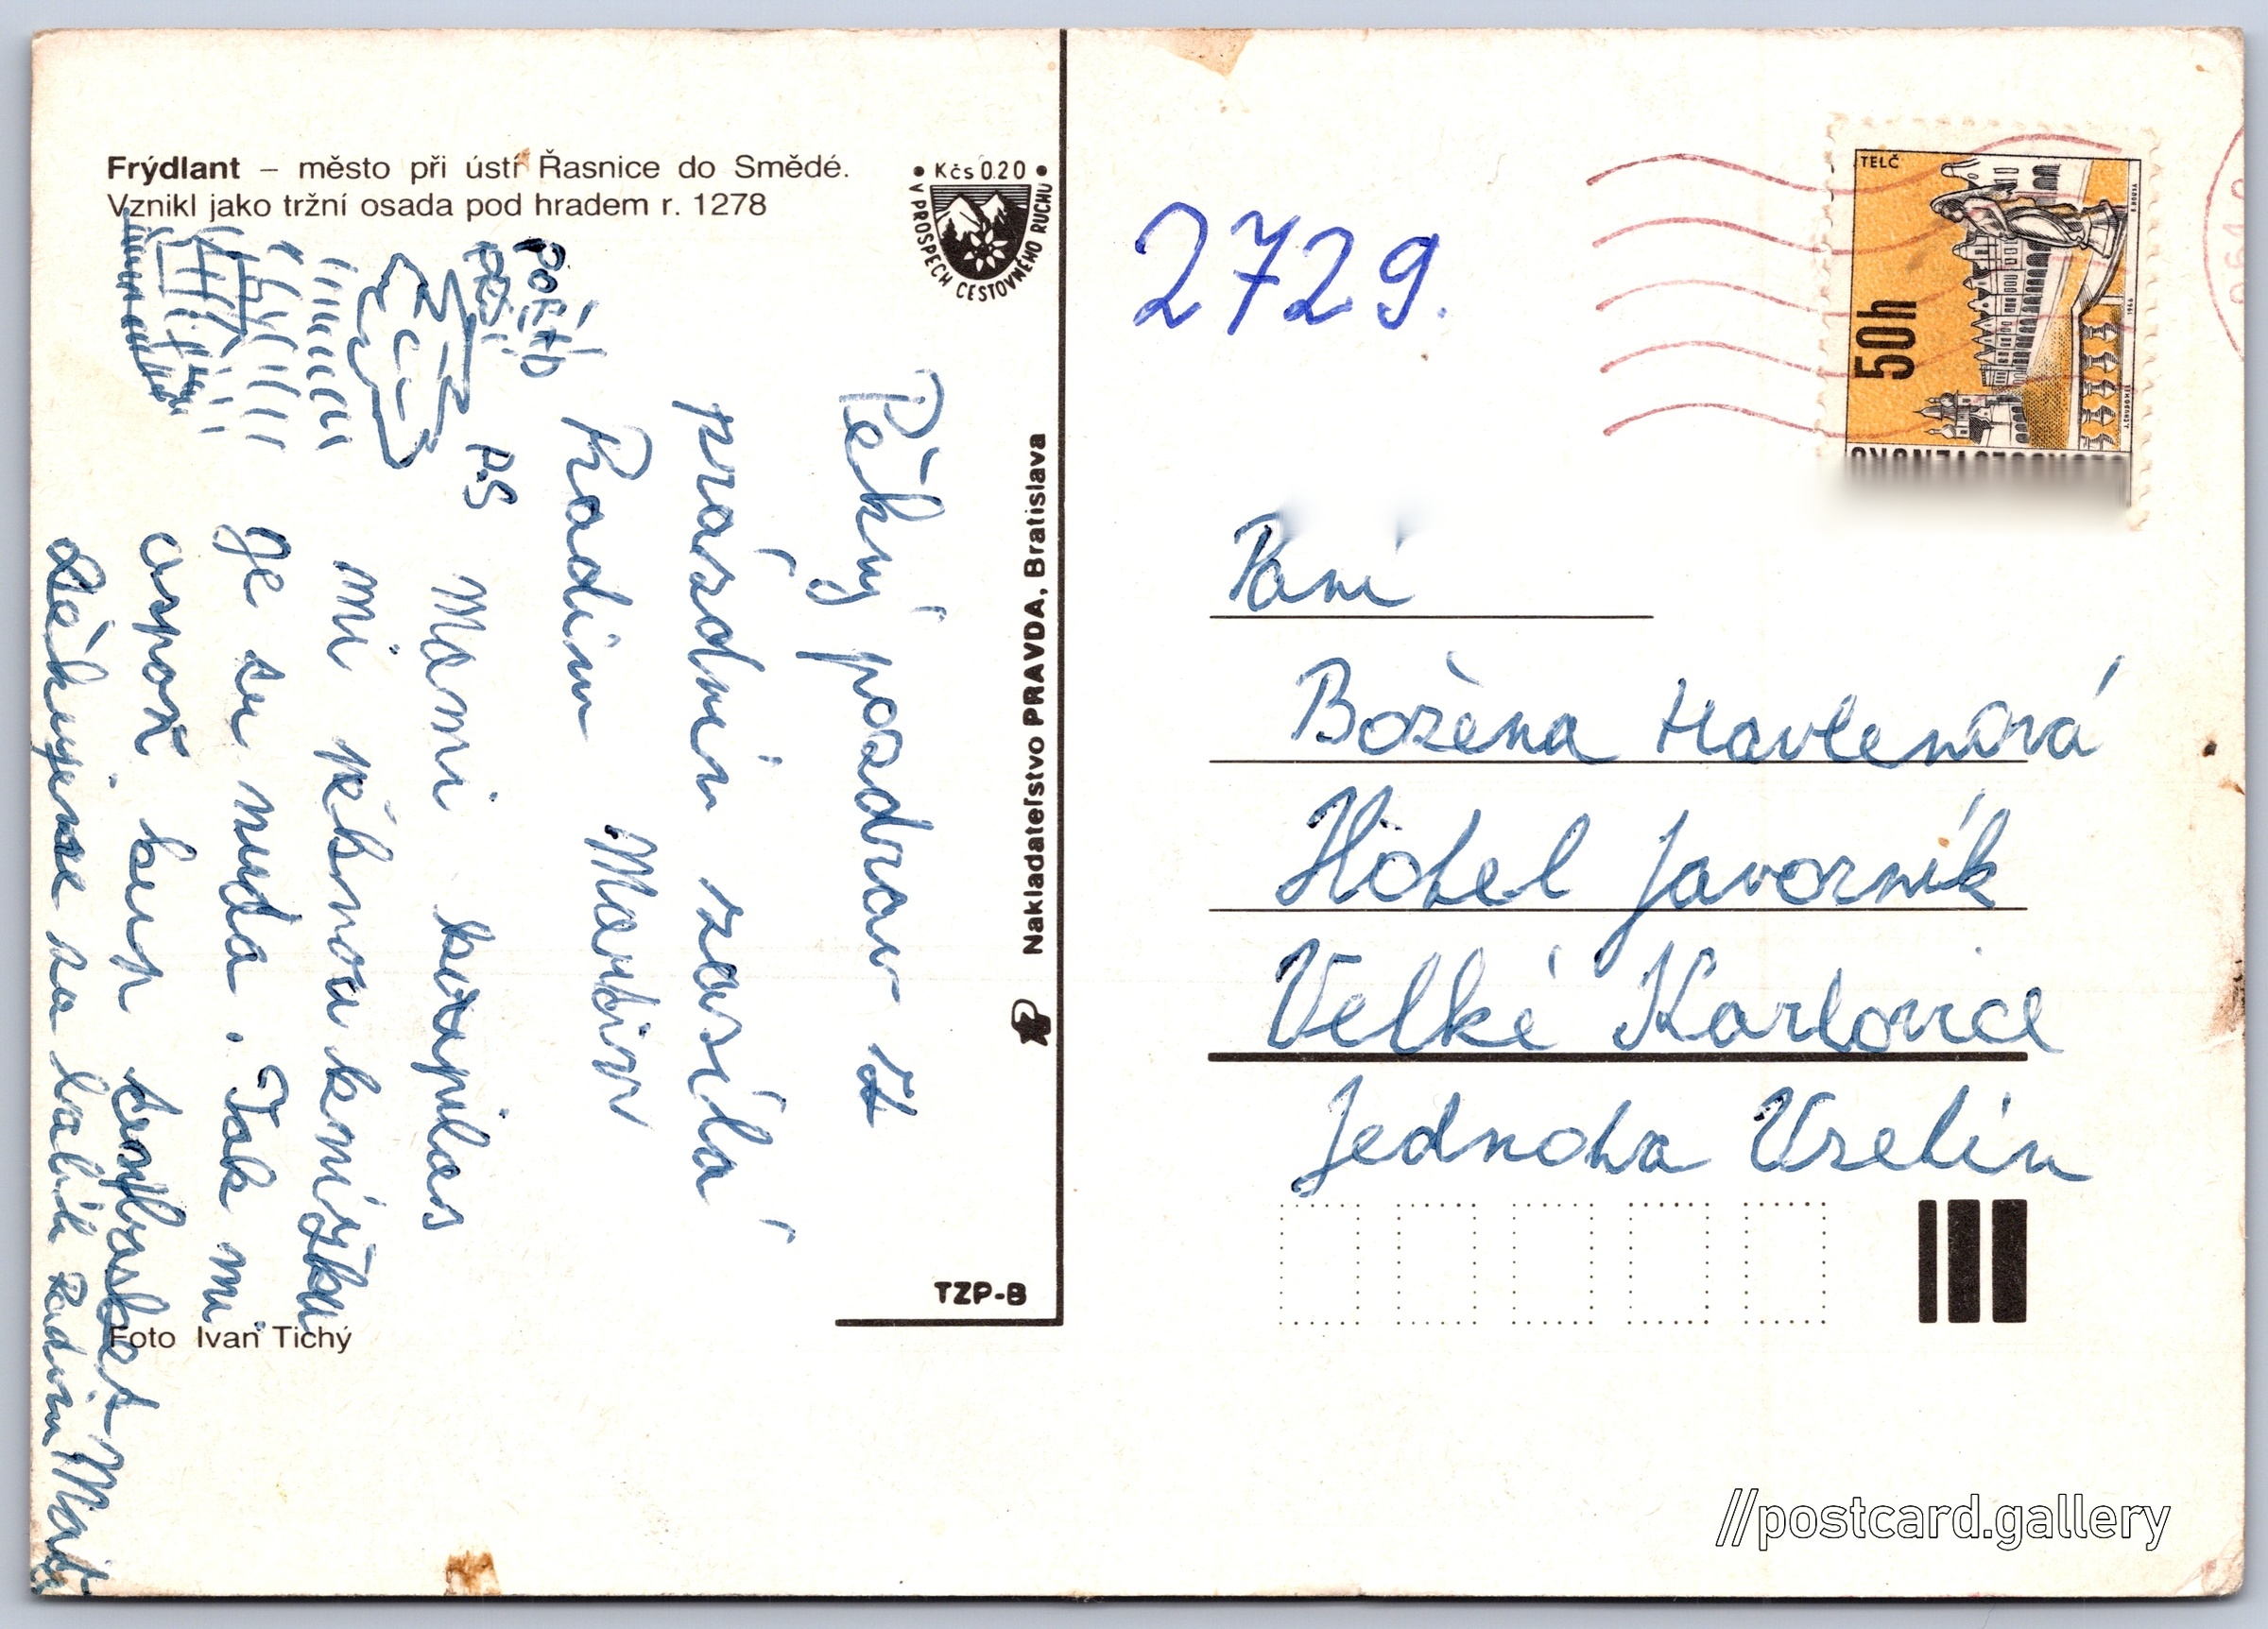 Frýdlant – město při ústí Řasnice do Smědé.
Vznikl jako tržní osada pod hradem r. 1278
• Kčs 0.20 •
V PROSPECH CESTOVNÉHO RUCHU
POŘÁD
PRŠÍ
Pěkný pozdrav z
prázdnin zasílá
Radim Martin
P.S Mami koupilas
mi pěknou knížku
Je tu nuda. Tak mi
aspoň kup
Děkujeme za balík Radim Mart
Foto Ivan Tichý
Nakladateľstvo PRAVDA, Bratislava
TZP-B
2729.
TELČ
50h
Paní
Božena Havlenová
Hotel Javorník
Velké Karlovice
Jednota Vsetín
//postcard.gallery